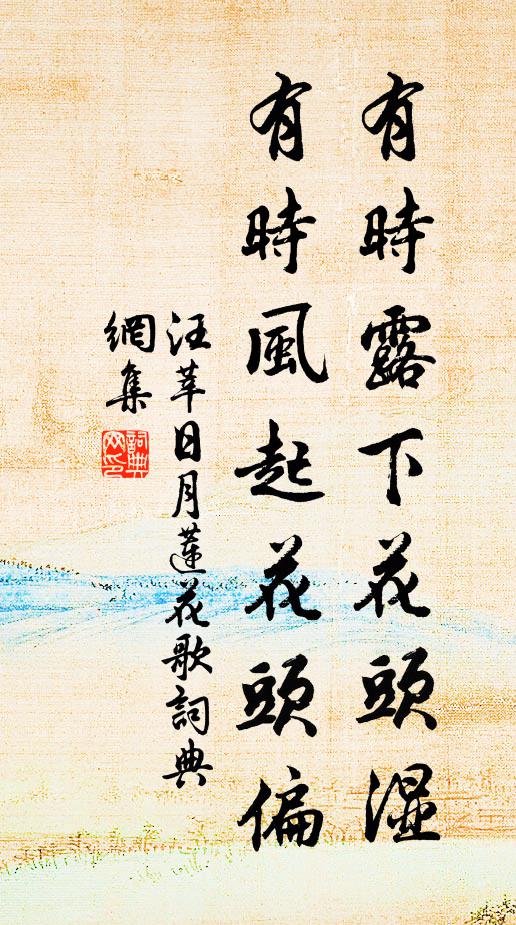 有時露下花頭濕
有時風起花頭偏
汪莘日月蓮花歌詞典
網集
詞典
網印